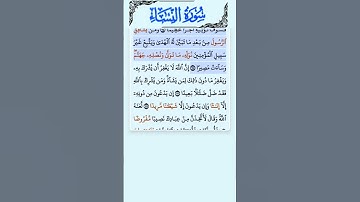 سُورَةُ النِّسَاءِ
فَسَوْفَ نُؤْتِيهِ أَجْرًا عَظِيمًا ۝ وَمَن يُشَاقِقِ
ٱلرَّسُولَ مِنۢ بَعْدِ مَا تَبَيَّنَ لَهُ ٱلْهُدَىٰ وَيَتَّبِعْ غَيْرَ
سَبِيلِ ٱلْمُؤْمِنِينَ نُوَلِّهِۦ مَا تَوَلَّىٰ وَنُصْلِهِۦ جَهَنَّمَ
وَسَآءَتْ مَصِيرًا ۝ إِنَّ ٱللَّهَ لَا يَغْفِرُ أَن يُشْرَكَ بِهِۦ
وَيَغْفِرُ مَا دُونَ ذَٰلِكَ لِمَن يَشَآءُ وَمَن يُشْرِكْ بِٱللَّهِ
فَقَدْ ضَلَّ ضَلَٰلًۢا بَعِيدًا ۝ إِن يَدْعُونَ مِن دُونِهِۦٓ
إِلَّآ إِنَٰثًا وَإِن يَدْعُونَ إِلَّا شَيْطَٰنًا مَّرِيدًا ۝ لَّعَنَهُ
ٱللَّهُ وَقَالَ لَأَتَّخِذَنَّ مِنْ عِبَادِكَ نَصِيبًا مَّفْرُوضًا